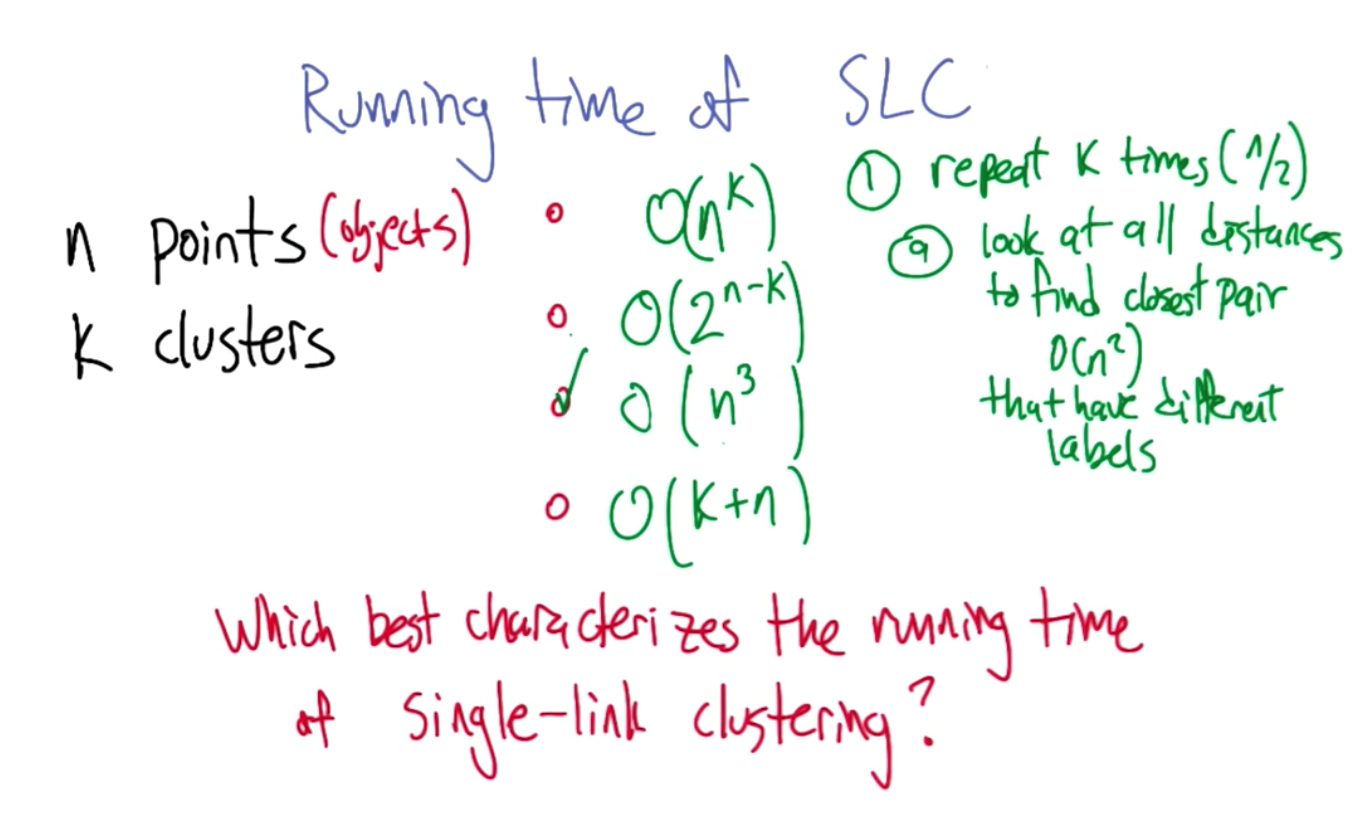 Running time of SLC
n points (objects)
K clusters
O(n^K)
O(2^{n-K})
O(n^3)
O(K+n)
① repeat K times (n/2)
ⓐ look at all distances
to find closest pair
O(n²)
that have different
labels
Which best characterizes the running time
of single-link clustering?